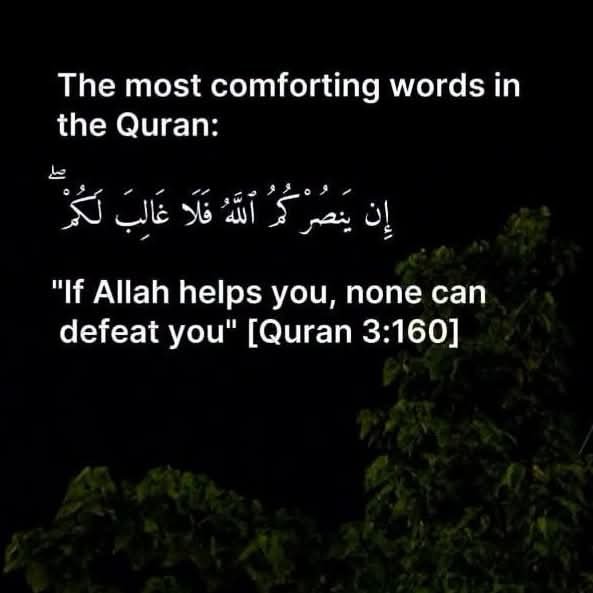 The most comforting words in
the Quran:
إِن يَنصُرْكُمُ ٱللَّهُ فَلَا غَالِبَ لَكُمْ ۖ
"If Allah helps you, none can
defeat you" [Quran 3:160]